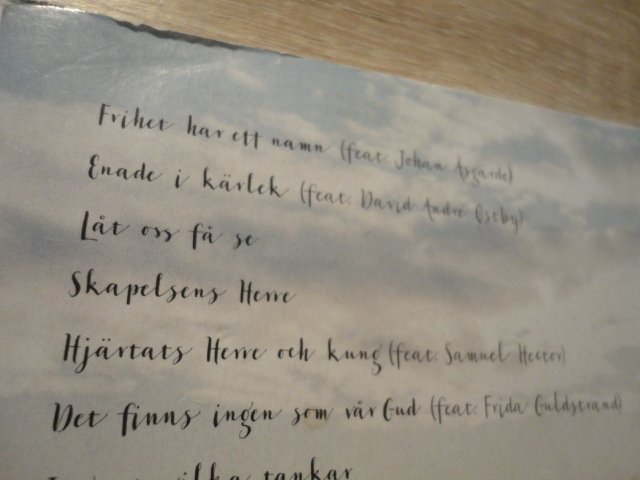 Frihet har ett namn (feat. Johan Åsgärde)
Enade i kärlek (feat. David André Østby)
Låt oss få se
Skapelsens Herre
Hjärtats Herre och kung (feat. Samuel Hector)
Det finns ingen som vår Gud (feat. Frida Guldstrand)
vilka tankar